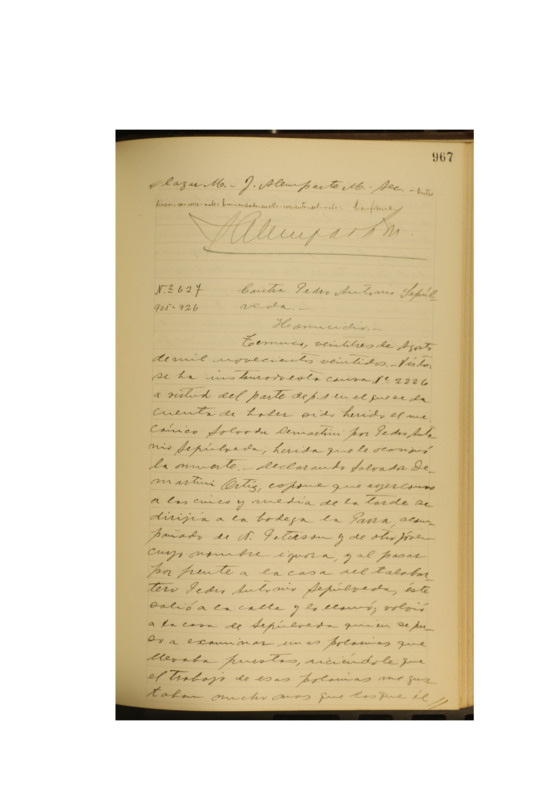 967
Plazas M. - J. Alemparte M. - Sec. - Entre
Alemparte M.
N.º 627
925-926
Contra Pedro Antonio Sepúl-
veda. -
Homicidio. -
Temuco, veintitres de Agosto
de mil novecientos veintidos. - Vistos,
se ha instruido esta causa N.º 2226
a virtud del parte de f. 1 en el que se da
cuenta de haber sido herido el me-
cánico Salvador Demartini por Pedro Anto
nio Sepúlveda, herida que le ocasionó
la muerte. - declarando Salvador De-
martini Ortiz, expone que ayer como
a las cinco y media de la tarde se
dirijía a la bodega la Parra, acom-
pañado de N. Peterson y de otro jóven
cuyo nombre ignora, y al pasar
por frente a la casa del talabar
tero Pedro Antonio Sepúlveda, éste
salió a la calle y lo llamó; volvió
a la casa de Sepúlveda quien se pu-
so a examinar unas polainas que
llevaba puestas, diciéndole que
el trabajo de esas polainas me gus
taban mucho mas que las que él